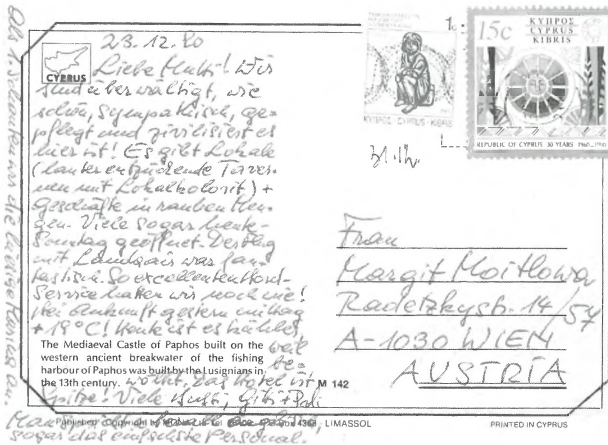 23.12.90
Liebe Mutti! Wir
sind überwältigt, wie
schön, sympathisch, ge-
pflegt und zivilisiert es
hier ist! Es gibt Lokale
(lauter entzückende Taver-
nen mit Lokalkolorit) +
Geschäfte in rauhen Men-
gen. Viele sogar heute -
Sonntag geöffnet. Der Flug
mit was fan-
tastisch. So excellenten Bord-
Service hatten wir noch nie!
Bei Ankunft gestern mittag
+19°C! Heute ist es kühler,
weil be-
wölkt. Das Hotel ist
Spitze! Viele Bussi, Gitti +
Man spricht
sogar das einfachste Personal.
Als 1. schmücken wir die hiesige an.
CYPRUS
The Mediaeval Castle of Paphos built on the
western ancient breakwater of the fishing
harbour of Paphos was built by the Lusignians in
the 13th century.
M 142
Published Copyright by LIMASSOL
PRINTED IN CYPRUS
1c
ΚΥΠΡΟΣ · CYPRUS · KIBRIS
15c
ΚΥΠΡΟΣ
CYPRUS
KIBRIS
REPUBLIC OF CYPRUS 30 YEARS 1960-1990
31.12.
Frau
Margit Moitlowa
Radetzkystr. 14/57
A-1030 WIEN
AUSTRIA